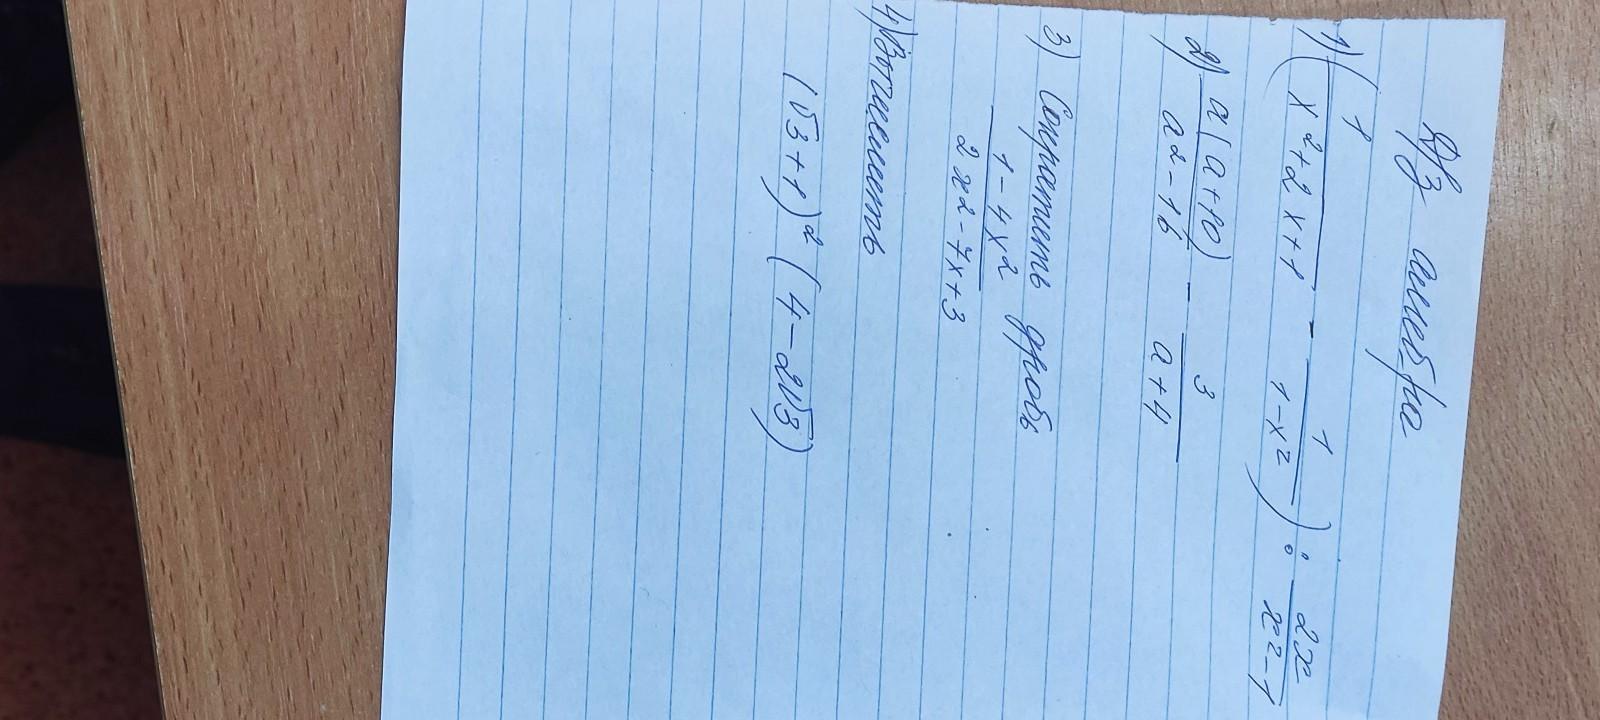 Д/з алгебра
1) (1/(x²+2x+1) - 1/(1-x²)) : 2x/(x²-1)
2) a(a+10)/(a2-16) - 3/(a+4)
3) Сократить дробь
(1-4x2)/(2x2-7x+3)
4) Вычислить
(√3+1)² (4-2√3)